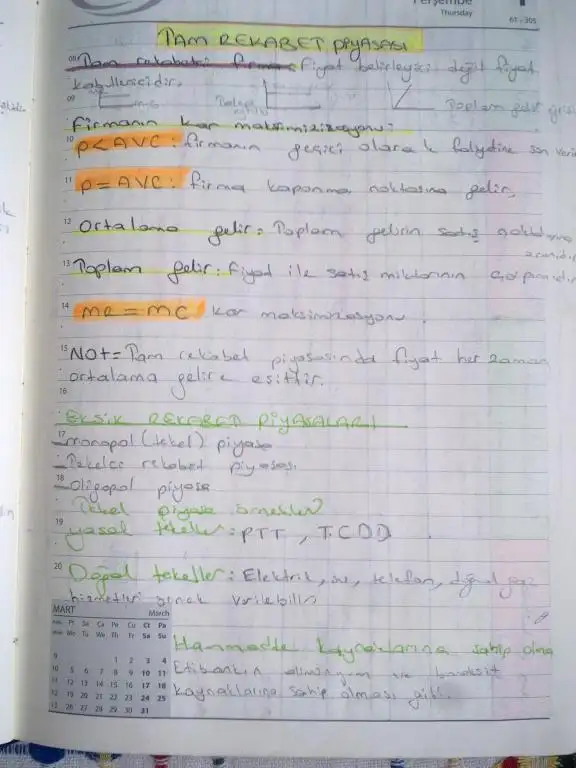 Perşembe
Thursday
61 - 305
TAM REKABET PİYASASI
08 Tam rekabette firma fiyat belirleyici değil fiyat
kabullenicidir.
09 MC Talep Toplam gelir eğrisi
Firmanın kar maksimizizasyonu:
10 P<AVC: firmanın geçici olarak faliyetine son
11 P=AVC: firma kapanma noktasına gelir,
12 Ortalama gelir: Toplam gelirin satış miktarına
oranıdır
13 Toplam gelir: fiyat ile satış miktarının çarpımıdır
14 MR=MC kar maksimizasyonu.
15 NOt= Tam rekabet piyasasında fiyat her zaman
ortalama gelire eşittir.
16
EKSİK REKABET PİYASALARI
17
- monopol (tekel) piyasa
- Tekelce rekabet piyasası
18
- Oligopol piyasa
Tekel piyasa örnekleri
19
yasal tekeller: PTT, T.C.D.D
20 Doğal tekeller: Elektrik, su, telefon, doğal gaz
hizmetleri örnek verilebilir
MART March
Pt Sa Ça Pe Cu Ct Pa
Mo Tu We Th Fr Sa Su
9 1 2 3 4
10 5 6 7 8 9 10 11
11 12 13 14 15 16 17 18
12 19 20 21 22 23 24 25
13 26 27 28 29 30 31
Hammadde kaynaklarına sahip olma
Etibankın aliminyum ve boraksit
kaynaklarına sahip olması gibi.